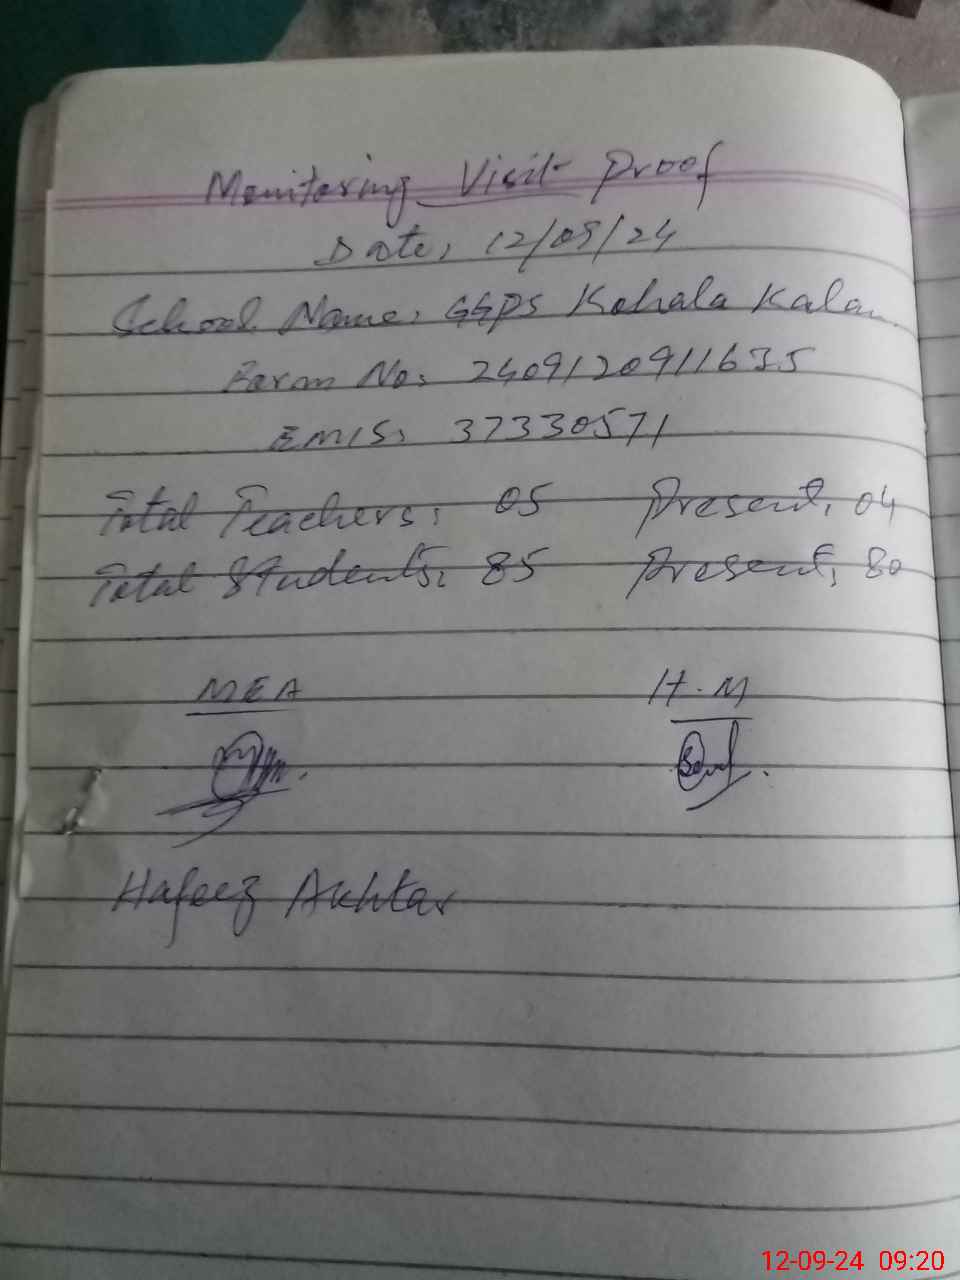 Monitering Visit Proof
Date: 12/09/24
School Name: GGPS Kohala Kalan
Farm No: 2409120911635
EMIS: 37330571
Total Teachers: 05 Present: 04
Total Students: 85 Present: 80
MEA H.M
Hafeez Akhtar
12-09-24 09:20